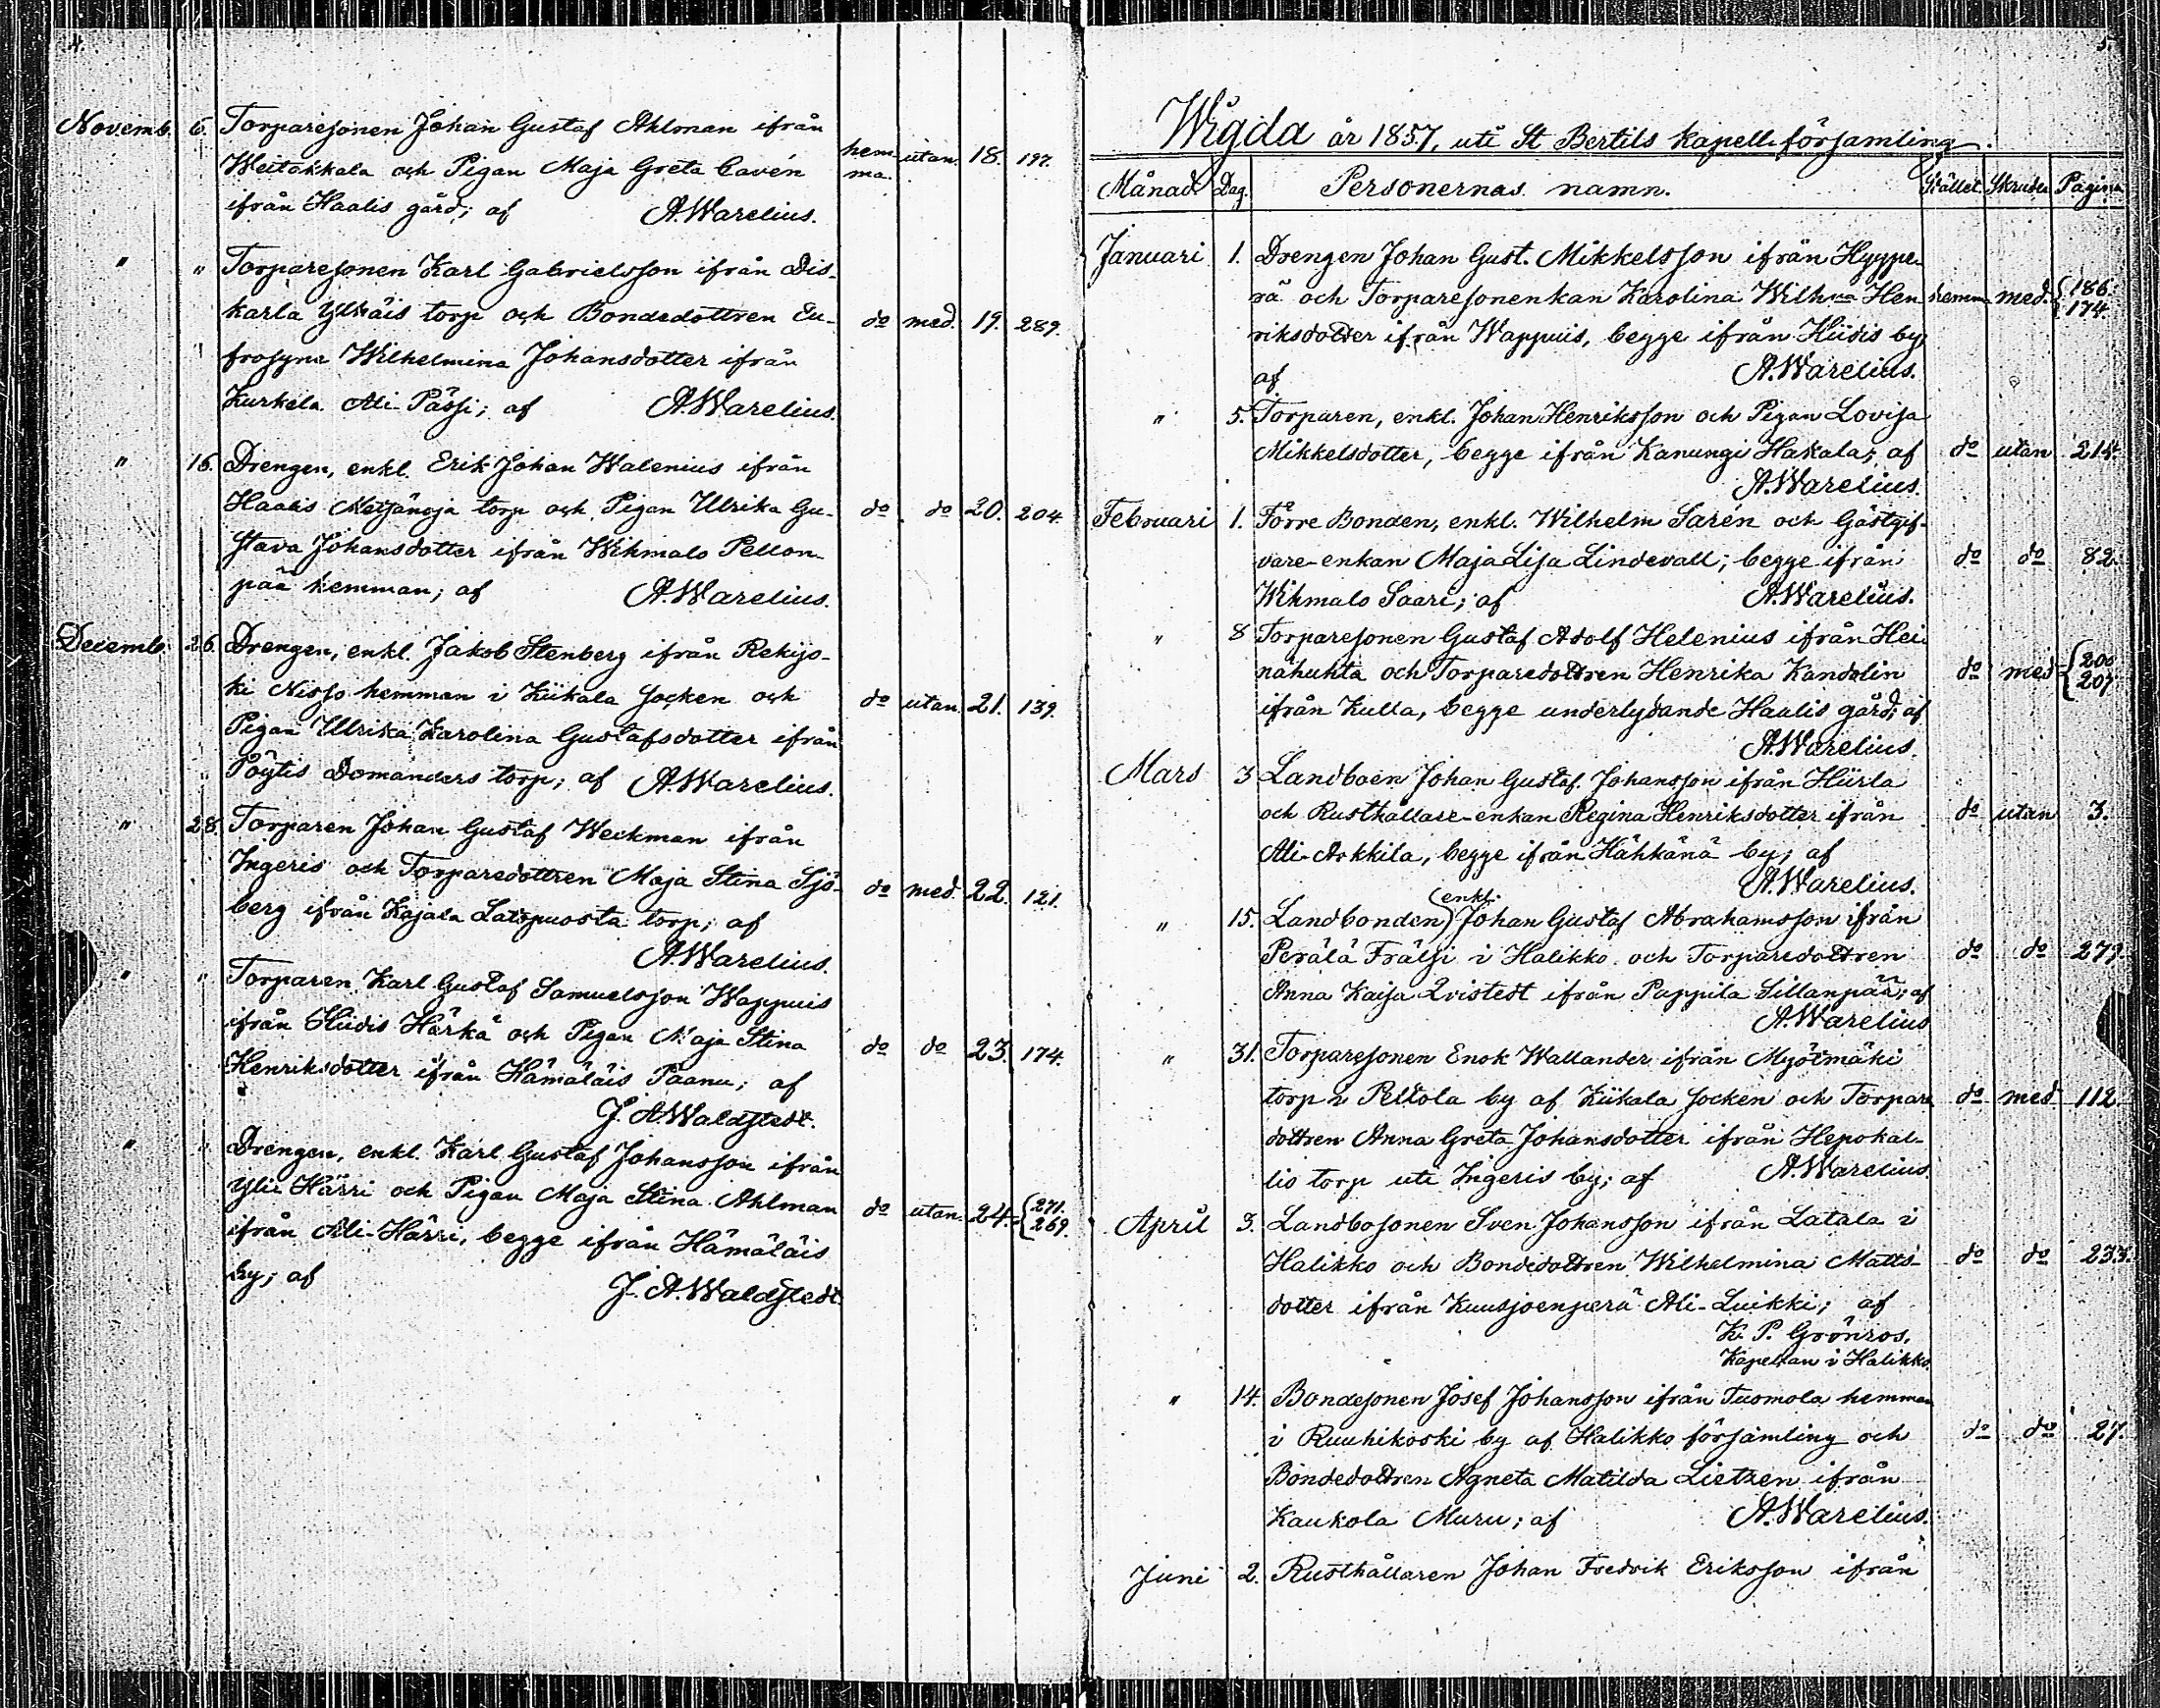 4.
Novemb. 6. Torparesonen Johan Gustaf Ahlman ifrån
Weitakkala och Pigan Maja Greta Cavén hemma. utan. 18. 197.
ifrån Haalis gård; af A. Warelius.
" " Torparesonen Karl Gabrielsson ifrån Dis-
karla Ylhäis torp och Bondedottren Eu- do med. 19. 289.
frosyna Wilhelmina Johansdotter ifrån
Kurkela Ali-Pässi; af A. Warelius.
" 16. Drengen, enkl. Erik Johan Walenius ifrån
Haalis Metsänoja torp och Pigan Ulrika Gu- do do 20. 204.
stava Johansdotter ifrån Wihmalo Pellon-
pää hemman; af A. Warelius.
Decemb. 26. Drengen, enkl. Jakob Stenberg ifrån Rekijo-
ki Nisso hemman i Kiikala Socken och do utan. 21. 139.
Pigan Ulrika Karolina Gustafsdotter ifrån
Pöytis Domanders torp; af A. Warelius.
" 28. Torparen Johan Gustaf Weckman ifrån
Ingeris och Torparedottren Maja Stina Sjö- do med. 22. 121.
berg ifrån Kajala Latopuosta torp; af
A. Warelius.
" " Torparen Karl Gustaf Samuelsson Wappuis
ifrån Hiidis Härkä och Pigan Maja Stina do do 23. 174.
Henriksdotter ifrån Hämäläis Paanu; af
J. A. Waldstedt.
" " Drengen, enkl. Karl Gustaf Johansson ifrån
Yli-Härri och Pigan Maja Stina Ahlman do utan. 24. 271. 269.
ifrån Ali-Härri, begge ifrån Hämäläis
by; af J. A. Waldstedt.
5.
Wigda år 1857, uti St Bertils Kapellförsamling.
Månad Dag. Personernas namn. Stället. Skruden Pagina
Januari 1. Drengen Johan Gust. Mikkelsson ifrån Hyype-
rä och Torparesonenkan Karolina Wilhna Hen- hemma med. 186. 174.
riksdotter ifrån Wappuis, begge ifrån Hiidis by,
af A. Warelius.
" 5. Torparen, enkl. Johan Henriksson och Pigan Lovisa
Mikkelsdotter, begge ifrån Kanungi Hakala; af do utan 214.
A. Warelius.
Februari 1. Förre Bonden, enkl. Wilhelm Sarén och Gästgif-
vare-enkan Maja Lisa Lindevall; begge ifrån do do 82.
Wihmalo Saari; af A. Warelius.
" 8 Torparesonen Gustaf Adolf Helenius ifrån Hei-
nähuhta och Torparedottren Henrika Kandolin do med 200 207.
ifrån Kulla, begge underlydande Haalis gård; af
A. Warelius.
Mars 3 Landboen Johan Gustaf Johansson ifrån Hiirla
och Rusthållare-enkan Regina Henriksdotter ifrån do utan 3.
Ali-Arkkila, begge ifrån Hähkänä by; af
A. Warelius.
enkl.
" 15. Landbonden Johan Gustaf Abrahamsson ifrån
Perälä Frälsi i Halikko och Torparedottren do do 279.
Anna Kaisa Qvistedt ifrån Pappila Sillanpää; af
A. Warelius
" 31. Torparesonen Enok Wallander ifrån Myötmäki
torp i Peltola by af Kiikala Socken och Torpare do med 112.
dottren Anna Greta Johansdotter ifrån Hepokal-
lio torp uti Ingeris by; af A. Warelius.
April 3. Landbosonen Sven Johansson ifrån Latala i
Halikko och Bondedottren Wilhelmina Matts- do do 233.
dotter ifrån Kuusjoenperä Ali-Luikki; af
K. P. Grönros,
Kapellan i Halikko
" 14. Bondesonen Josef Johansson ifrån Tuomola hemman
i Ruuhikoski by af Halikko församling och do do 27.
Bondedottren Agneta Matilda Lietzen ifrån
Kaukola Muru; af A. Warelius.
Juni 2. Rusthållaren Johan Fredrik Eriksson ifrån